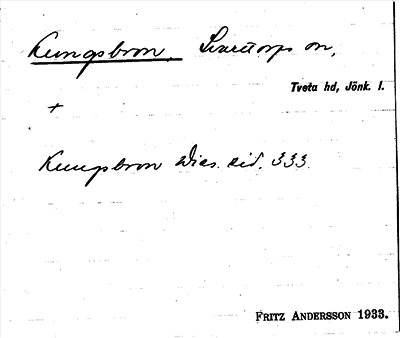 Kungsbron, Svarttorps sn,
Tveta hd, Jönk. l.
+
Kungsbron Wies. sid. 333.
FRITZ ANDERSSON 1933.